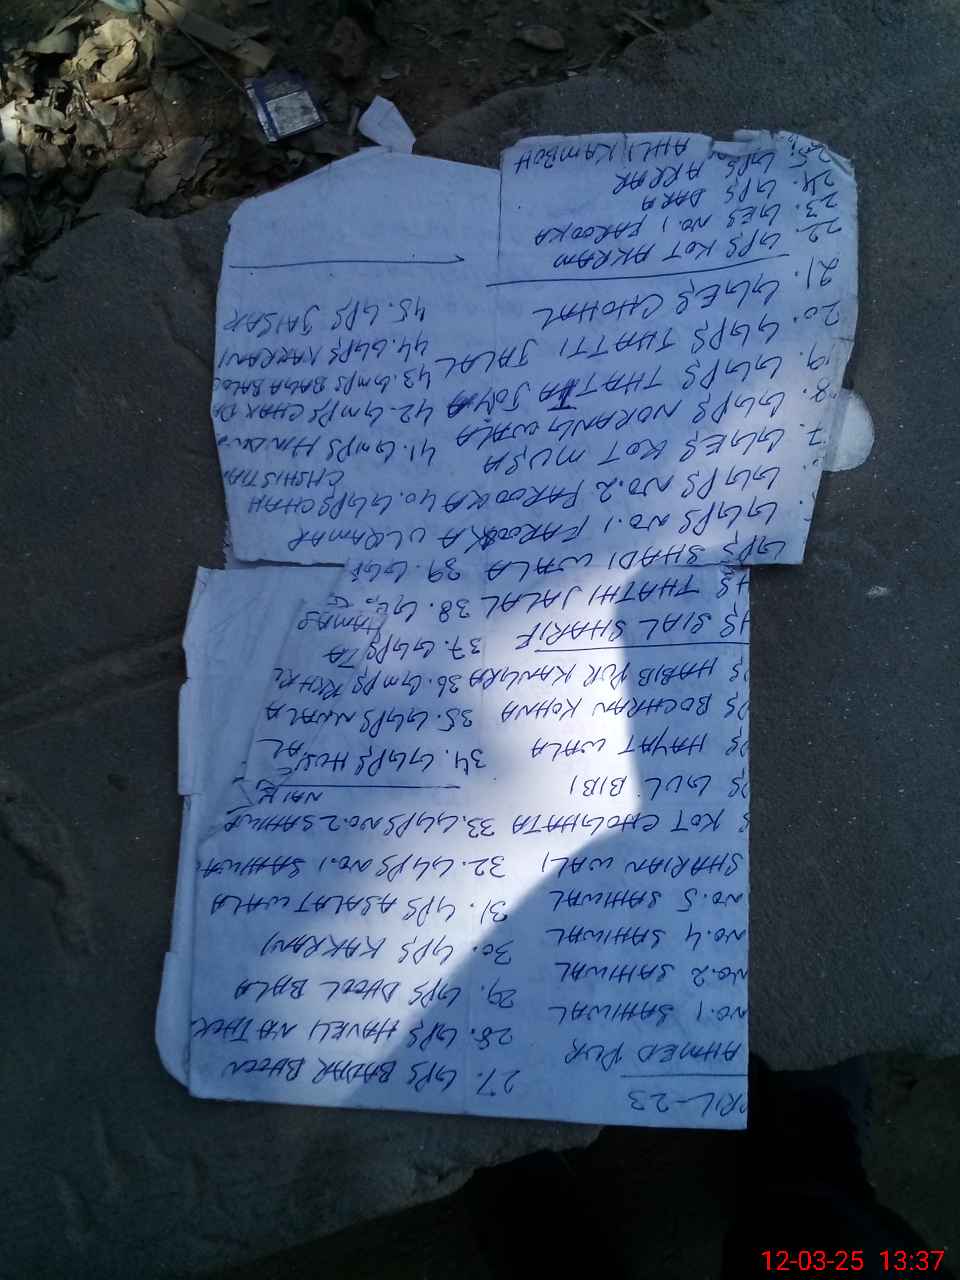 RIL-23
AHMED PUR
NO.1 SAHIWAL
NO.2 SAHIWAL
NO.4 SAHIWAL
NO.5 SAHIWAL
SHARIAN WALI
KOT CHOGHATA
GUL BIBI
HAYAT WALA
BOCHRAN KOHNA
HABIB PUR KANGRA
HS SIAL SHARIF
HS THATHI JALAL
GPS SHADI WALA
GGPS NO.1 FAROOKA
GGPS NO.2 FAROOKA
7. GGES KOT MUSA
8. GGPS NORANG WALA
9. GGPS THATTA JOYA
20. GGPS THATTI JALAL
21. GGES CHOHAL
22. GPS KOT AKRAM
23. GES NO.1 FAROOKA
24. GPS DARA
25. GPS ARRAR
AHLI KAMBOH
27. GPS BADAR BHOON
28. GPS HAVELI NATHOK
29. GPS DHOOL BALA
30. GPS KAKRANI
31. GPS ASALAT WALA
32. GGPS NO.1 SAHIWA
33. GGPS NO.2 SAHIWA
34. GGPS HUS
35. GGPS NWALA
36. GMPS
37. GGPS TA
38. GG
39. GGP
UL QAMAR
40. GGPS CHAH
CHSHISTIA
41. GMPS HIN
42. GMPS CHAK DA
43. GMPS BAGA BALOC
44. GGPS KAKRANI
45. GPS JAISAK
12-03-25 13:37